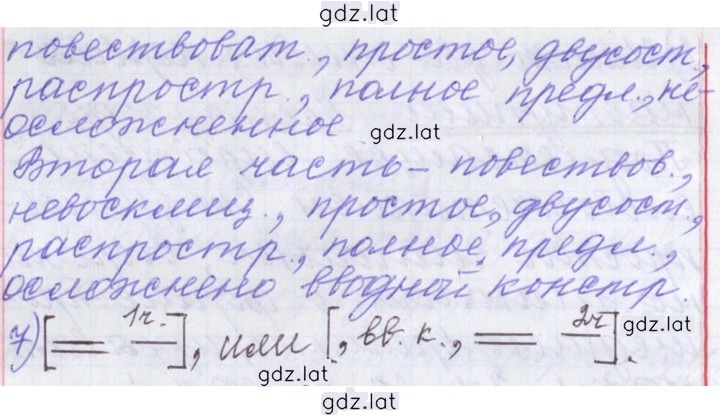 gdz.lat
повествоват., простое, двусост.,
распростр., полное предл., не-
осложненное
gdz.lat
Вторая часть – повествов.,
невосклиц., простое, двусост.,
распростр., полное предл.,
осложнено вводной констр
7) [== 1ч. —], или [, вв. к., == 2ч —].
gdz.lat
gdz.lat
gdz.lat